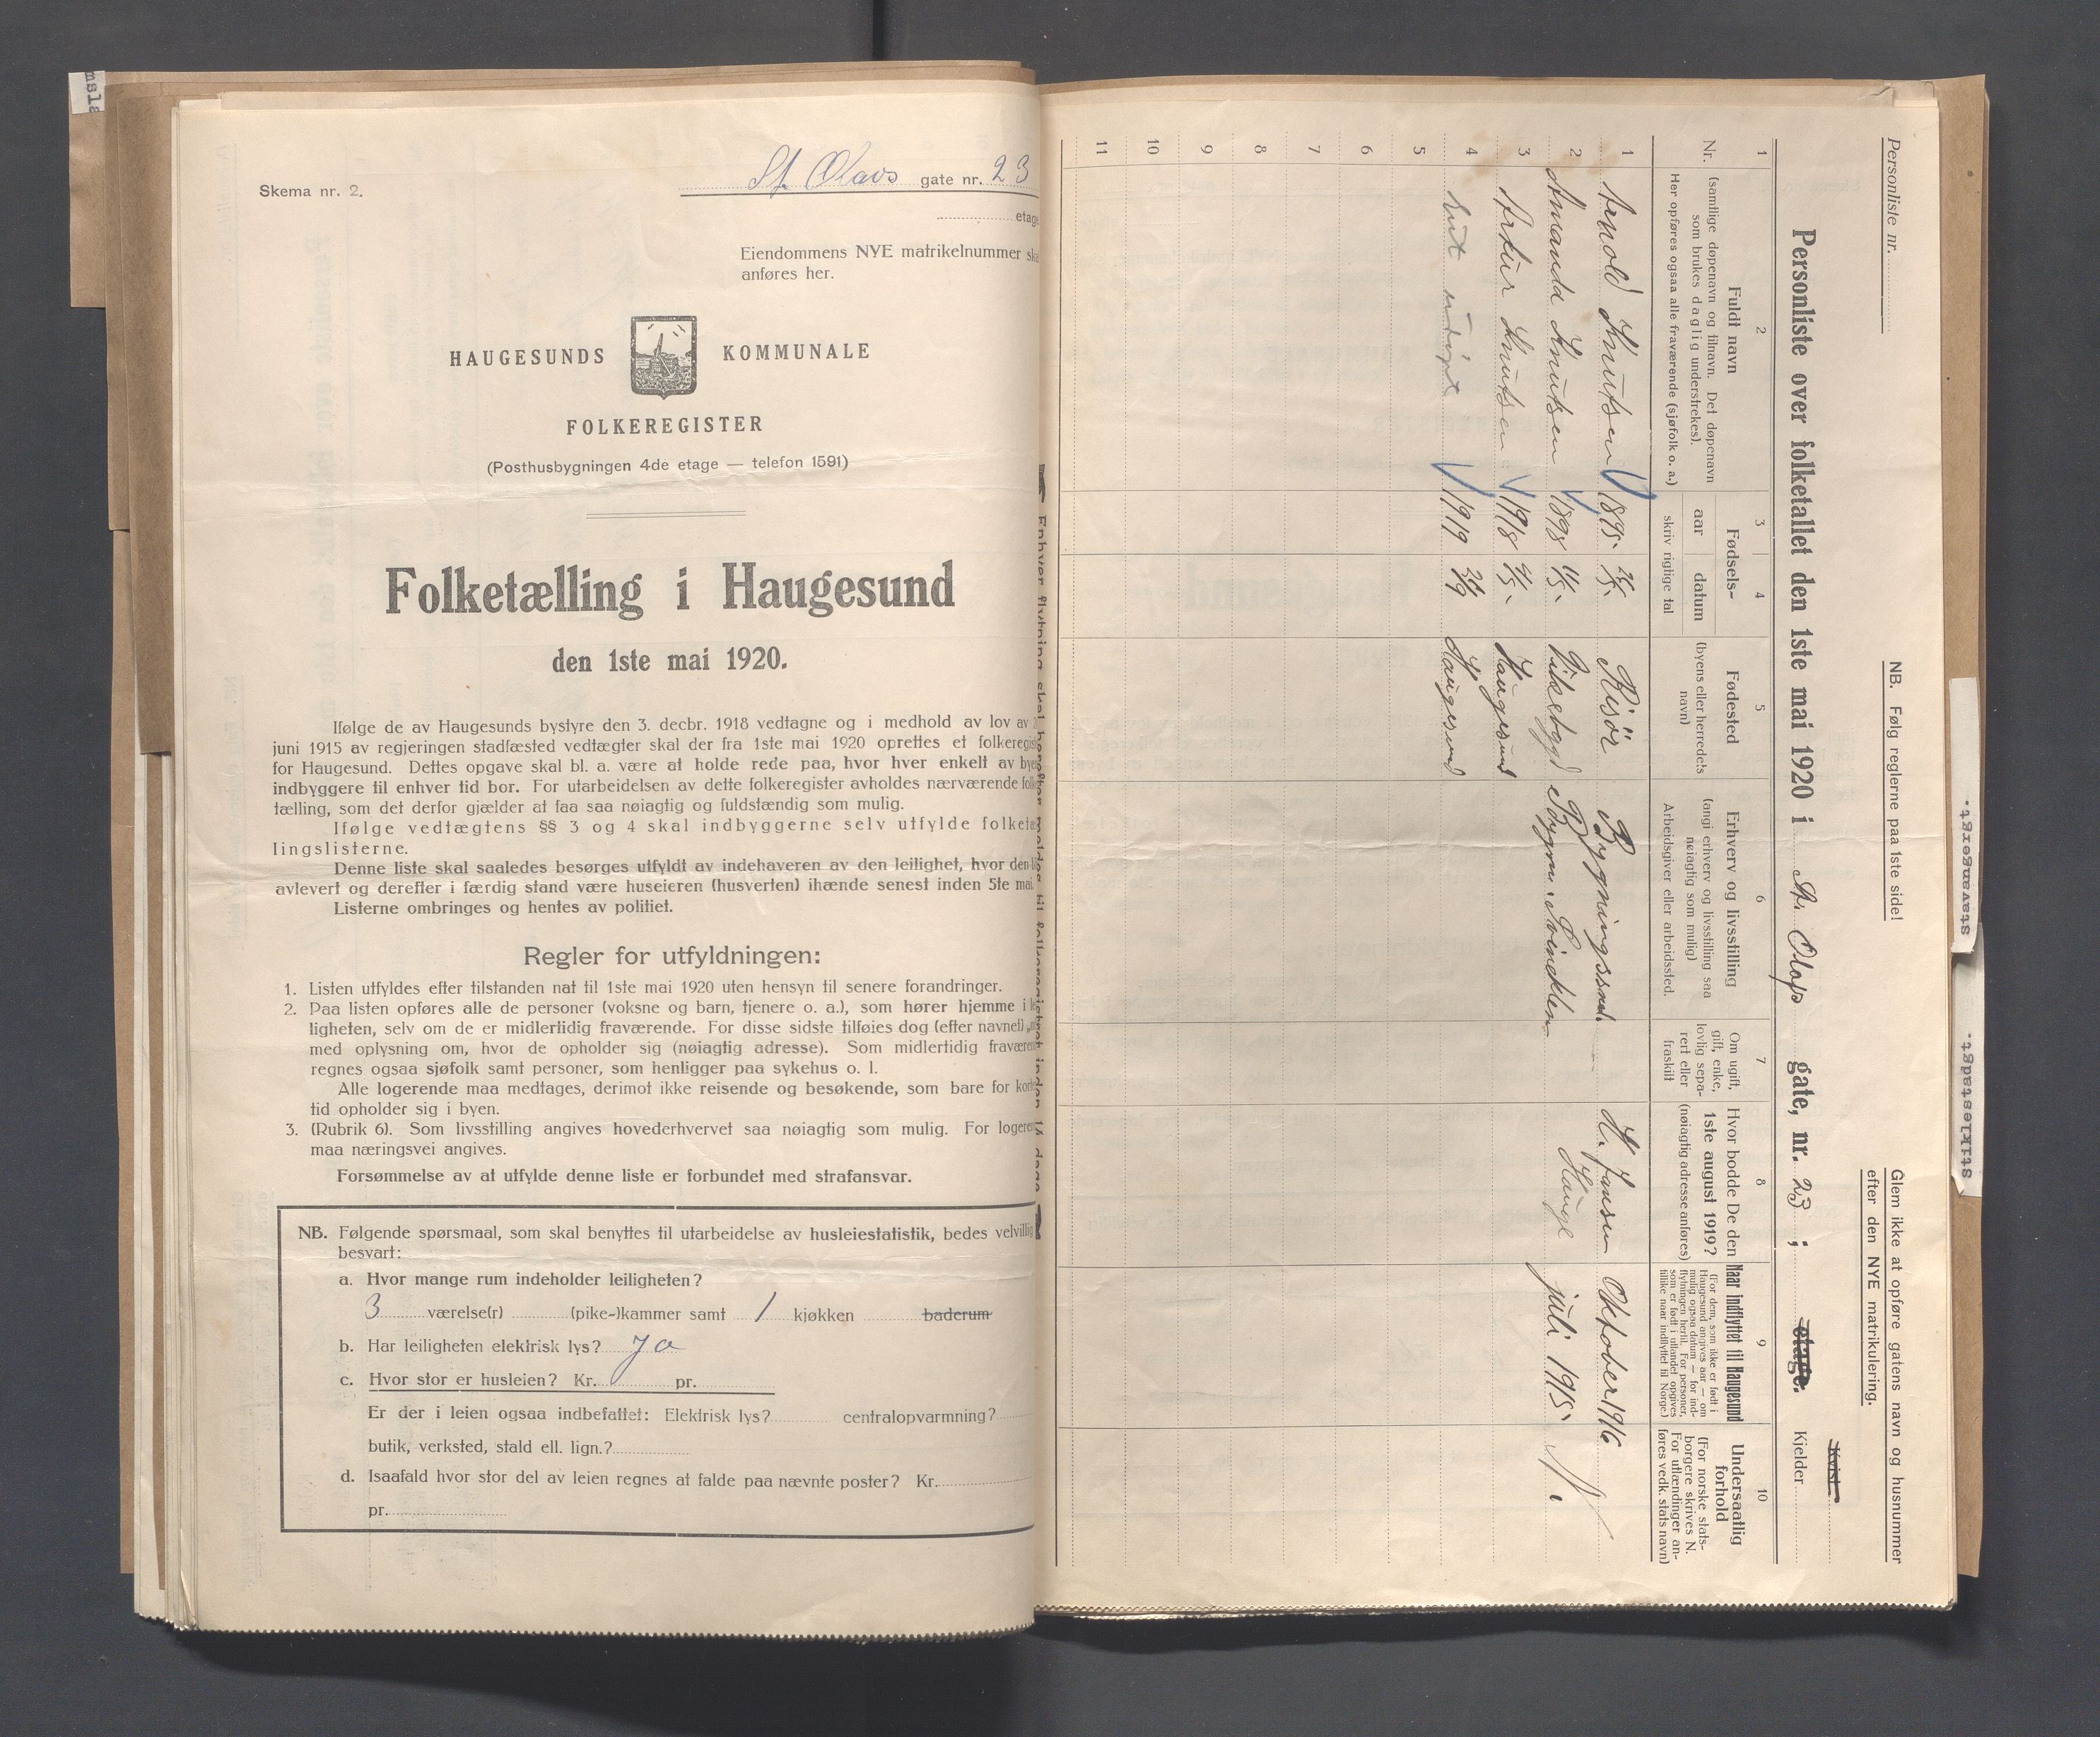 Skema nr. 2.
St. Olavs gate nr. 23
etage
Eiendommens NYE matrikelnummer ska
anføres her.
HAUGESUNDS KOMMUNALE
FOLKEREGISTER
(Posthusbygningen 4de etage — telefon 1591)
Folketælling i Haugesund
den 1ste mai 1920.
Ifølge de av Haugesunds bystyre den 3. decbr. 1918 vedtagne og i medhold av lov av
juni 1915 av regjeringen stadfæsted vedtægter skal der fra 1ste mai 1920 oprettes et folkeregis
for Haugesund. Dettes opgave skal bl. a. være at holde rede paa, hvor hver enkelt av bye
indbyggere til enhver tid bor. For utarbeidelsen av dette folkeregister avholdes nærværende fol
tælling, som det derfor gjælder at faa saa nøiagtig og fuldstændig som mulig.
Ifølge vedtægtens §§ 3 og 4 skal indbyggerne selv utfylde folketæ
lingslisterne.
Denne liste skal saaledes besørges utfyldt av indehaveren av den leilighet, hvor den
avlevert og derefter i færdig stand være huseieren (husverten) ihænde senest inden 5te mai
Listerne ombringes og hentes av politiet.
Regler for utfyldningen:
1. Listen utfyldes efter tilstanden nat til 1ste mai 1920 uten hensyn til senere forandringer.
2. Paa listen opføres alle de personer (voksne og barn, tjenere o. a.), som hører hjemme i
ligheten, selv om de er midlertidig fraværende. For disse sidste tilføies dog (efter navnet)
med oplysning om, hvor de opholder sig (nøiagtig adresse). Som midlertidig fravære
regnes ogsaa sjøfolk samt personer, som henligger paa sykehus o. l.
Alle logerende maa medtages, derimot ikke reisende og besøkende, som bare for kort
tid opholder sig i byen.
3. (Rubrik 6). Som livsstilling angives hovederhvervet saa nøiagtig som mulig. For logere
maa næringsvei angives.
Forsømmelse av at utfylde denne liste er forbundet med strafansvar.
NB. Følgende spørsmaal, som skal benyttes til utarbeidelse av husleiestatistik, bedes velvillig
besvart:
a. Hvor mange rum indeholder leiligheten?
3 værelse(r) (pike-)kammer samt 1 kjøkken baderum
b. Har leiligheten elektrisk lys? Ja
c. Hvor stor er husleien? Kr. pr.
Er der i leien ogsaa indbefattet: Elektrisk lys? centralopvarmning?
butik, verksted, stald ell. lign.?
d. Isaafald hvor stor del av leien regnes at falde paa nævnte poster? Kr.
pr.
Personliste nr.
NB. Følg reglerne paa 1ste side!
Glem ikke at opføre gatens navn og husnummer
efter den NYE matrikulering.
Kvist
Personliste over folketallet den 1ste mai 1920 i St. Olafs gate, nr. 23 ; etage. Kjelder
1 2 3 4 5 6 7 8 9 10
Nr.
Fuldt navn
(samtlige døpenavn og tilnavn. Det døpenavn
som brukes daglig understrekes).
Her opføres ogsaa alle fraværende (sjøfolk o. a.)
Fødsels-
aar datum
skriv rigtige tal
Fødested
(byens eller herredets
navn)
Erhverv og livsstilling
(angi erhverv og livsstilling saa
nøiagtig som mulig)
Arbeidsgiver eller arbeidssted.
Om ugift,
gift, enke,
lovlig sepa-
rert eller
fraskilt
Hvor bodde De den
1ste august 1919?
(nøiagtig adresse anføres)
Naar indflyttet til Haugesund
(For dem, som ikke er født i
Haugesund angives aar — om
mulig ogsaa datum — for ind-
flytningen hertil. For personer,
som er født i utlandet opgives
tillike naar indflyttet til Norge.)
Undersaatlig
forhold
(For norske stats-
borgere skrives N.
For utlændinger an-
føres vedk. stats navn)
1 Arnold Knutsen 1895. Risör Bygningssnd. K. Jansen Oktober 1916
2 Amanda Knutsen 1898 1/5. Vikebygd Hauge juli 1915. N.
3 Artur Knutsen 1918 Haugesund
4 Gut udöpt 1919 Haugesund
5
6
7
8
9
10
11
stavangergt.
stiklestadgt.